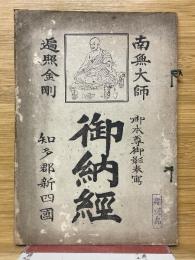 南無大師
遍照金剛
御本尊御影表寫
御納經
知多郡新四國